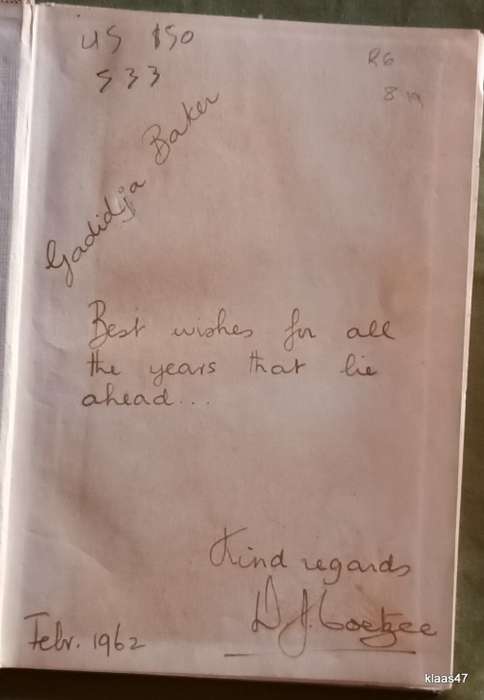 US $50
533
R6
8n
Gadidja Baker
Best wishes for all
the years that lie
ahead...
Kind regards
D J. Coetzee
Febr. 1962
klaas47